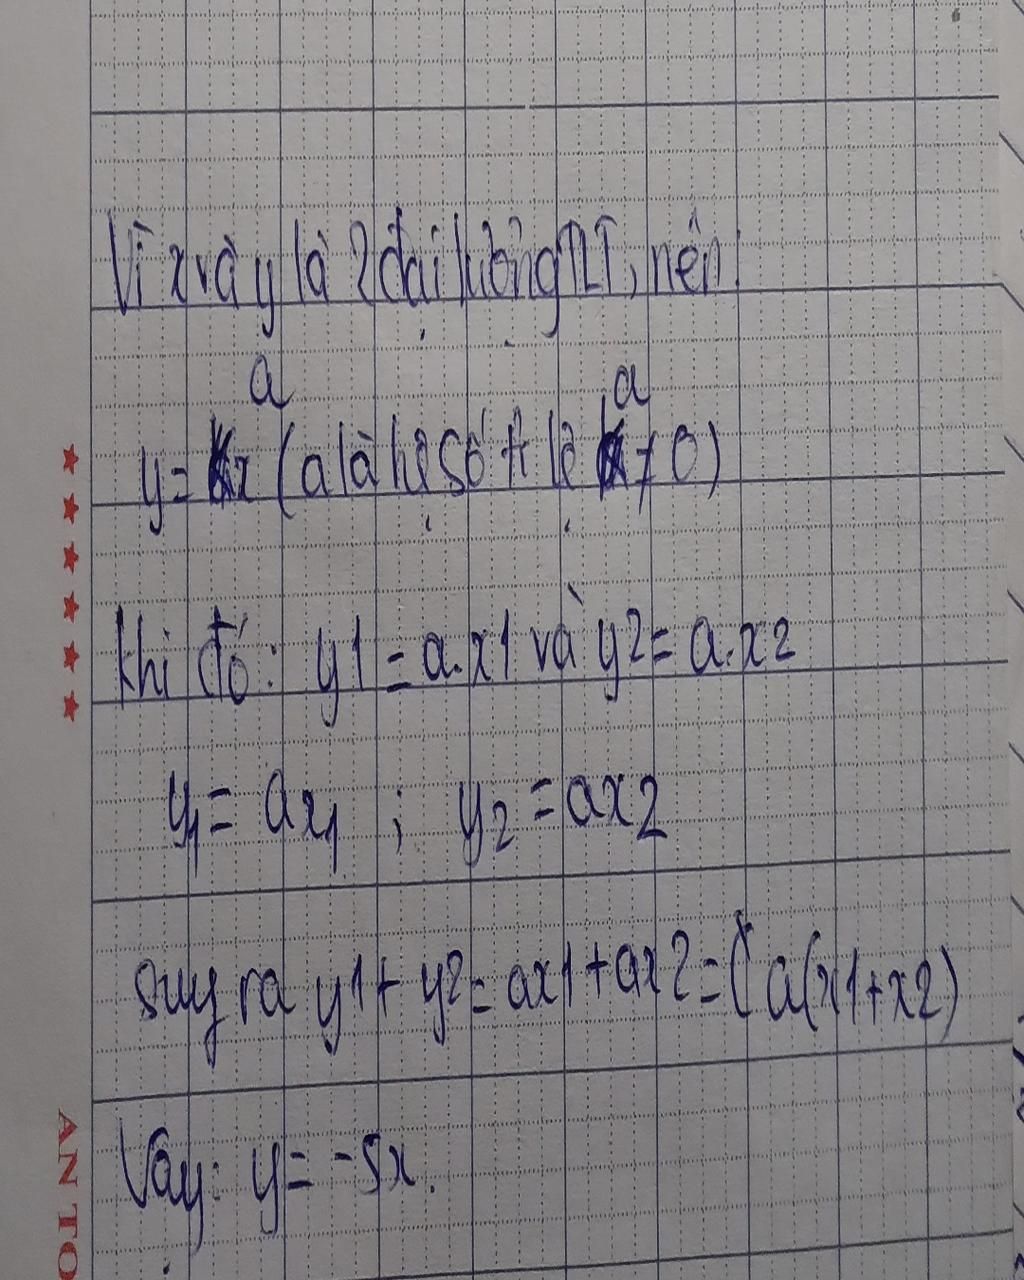 Vì x và y là 2 đại lượng TLT, nên:
a a
y = x (a là hệ số tỉ lệ ≠ 0)
Khi đó: y1 = a.x1 và y2 = a.x2
y1 = ax1 ; y2 = ax2
Suy ra y1 + y2 = ax1 + ax2 = ( a(x1+x2)
Vậy: y = -5x.
AN TO